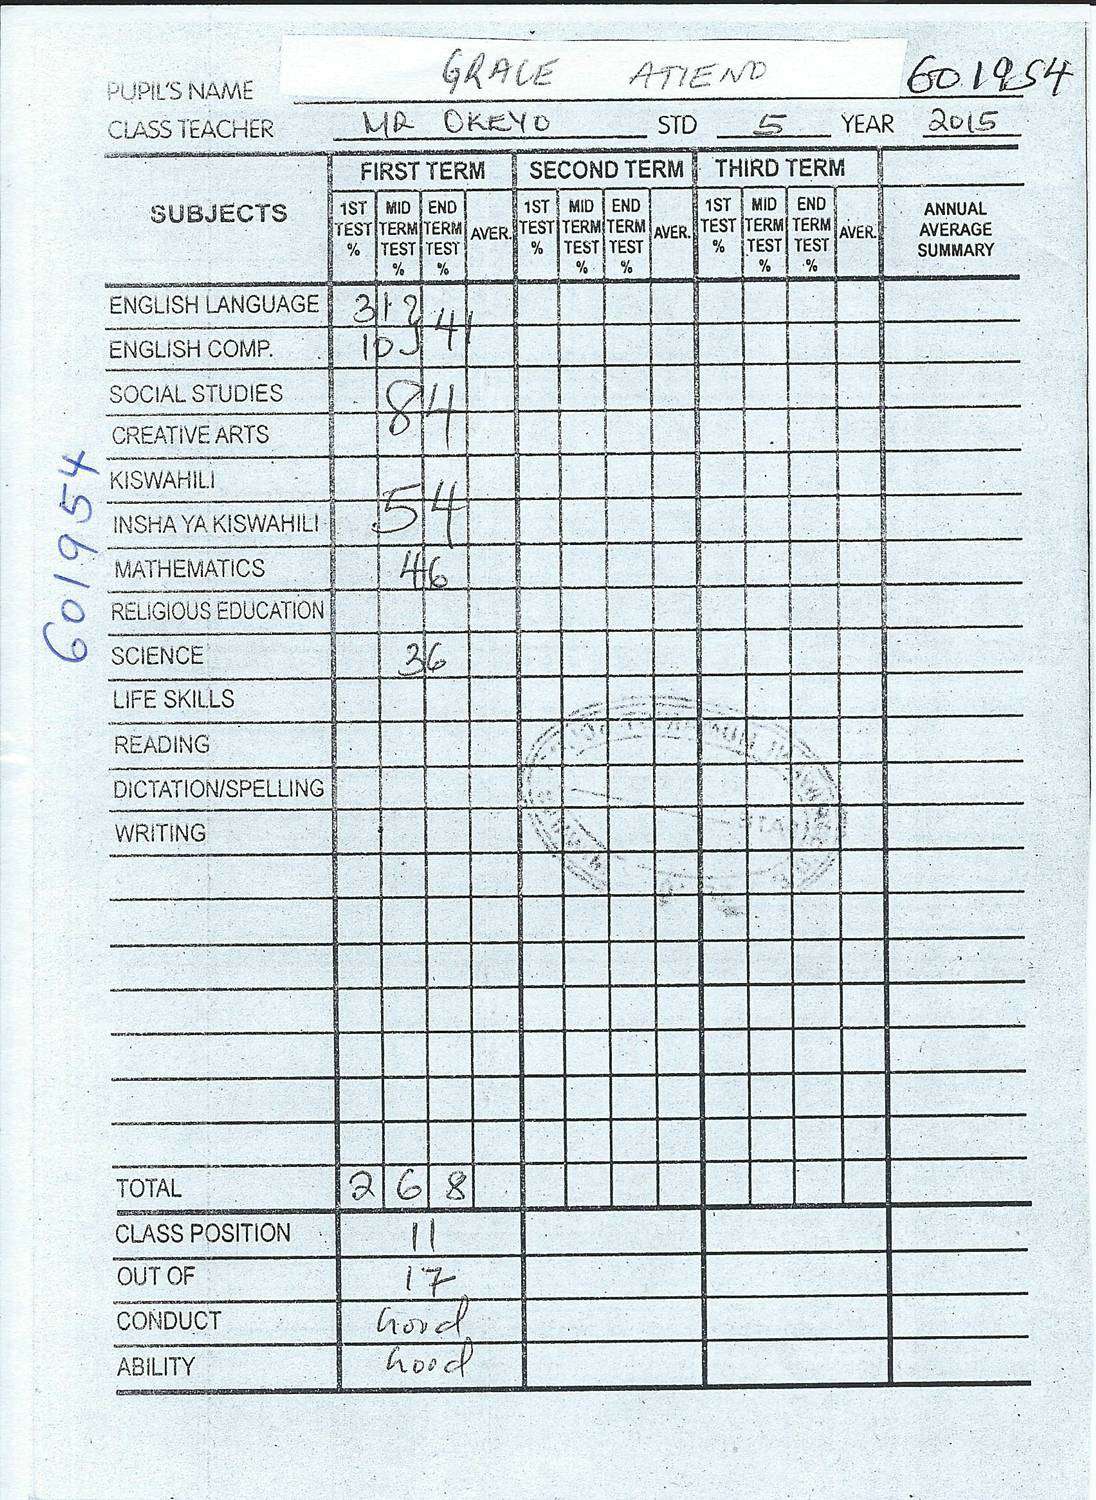 PUPIL'S NAME GRACE ATIENO 601954
CLASS TEACHER MR OKEYO STD 5 YEAR 2015
SUBJECTS FIRST TERM SECOND TERM THIRD TERM
1ST TEST % MID TERM TEST % END TERM TEST % AVER. 1ST TEST % MID TERM TEST % END TERM TEST % AVER. 1ST TEST % MID TERM TEST % END TERM TEST % AVER. ANNUAL AVERAGE SUMMARY
ENGLISH LANGUAGE 31 41
ENGLISH COMP. 10
SOCIAL STUDIES 84
CREATIVE ARTS
KISWAHILI 54
INSHA YA KISWAHILI
MATHEMATICS 46
RELIGIOUS EDUCATION
SCIENCE 36
LIFE SKILLS
READING
DICTATION/SPELLING
WRITING
TOTAL 268
CLASS POSITION 11
OUT OF 17
CONDUCT Good
ABILITY Good
601954